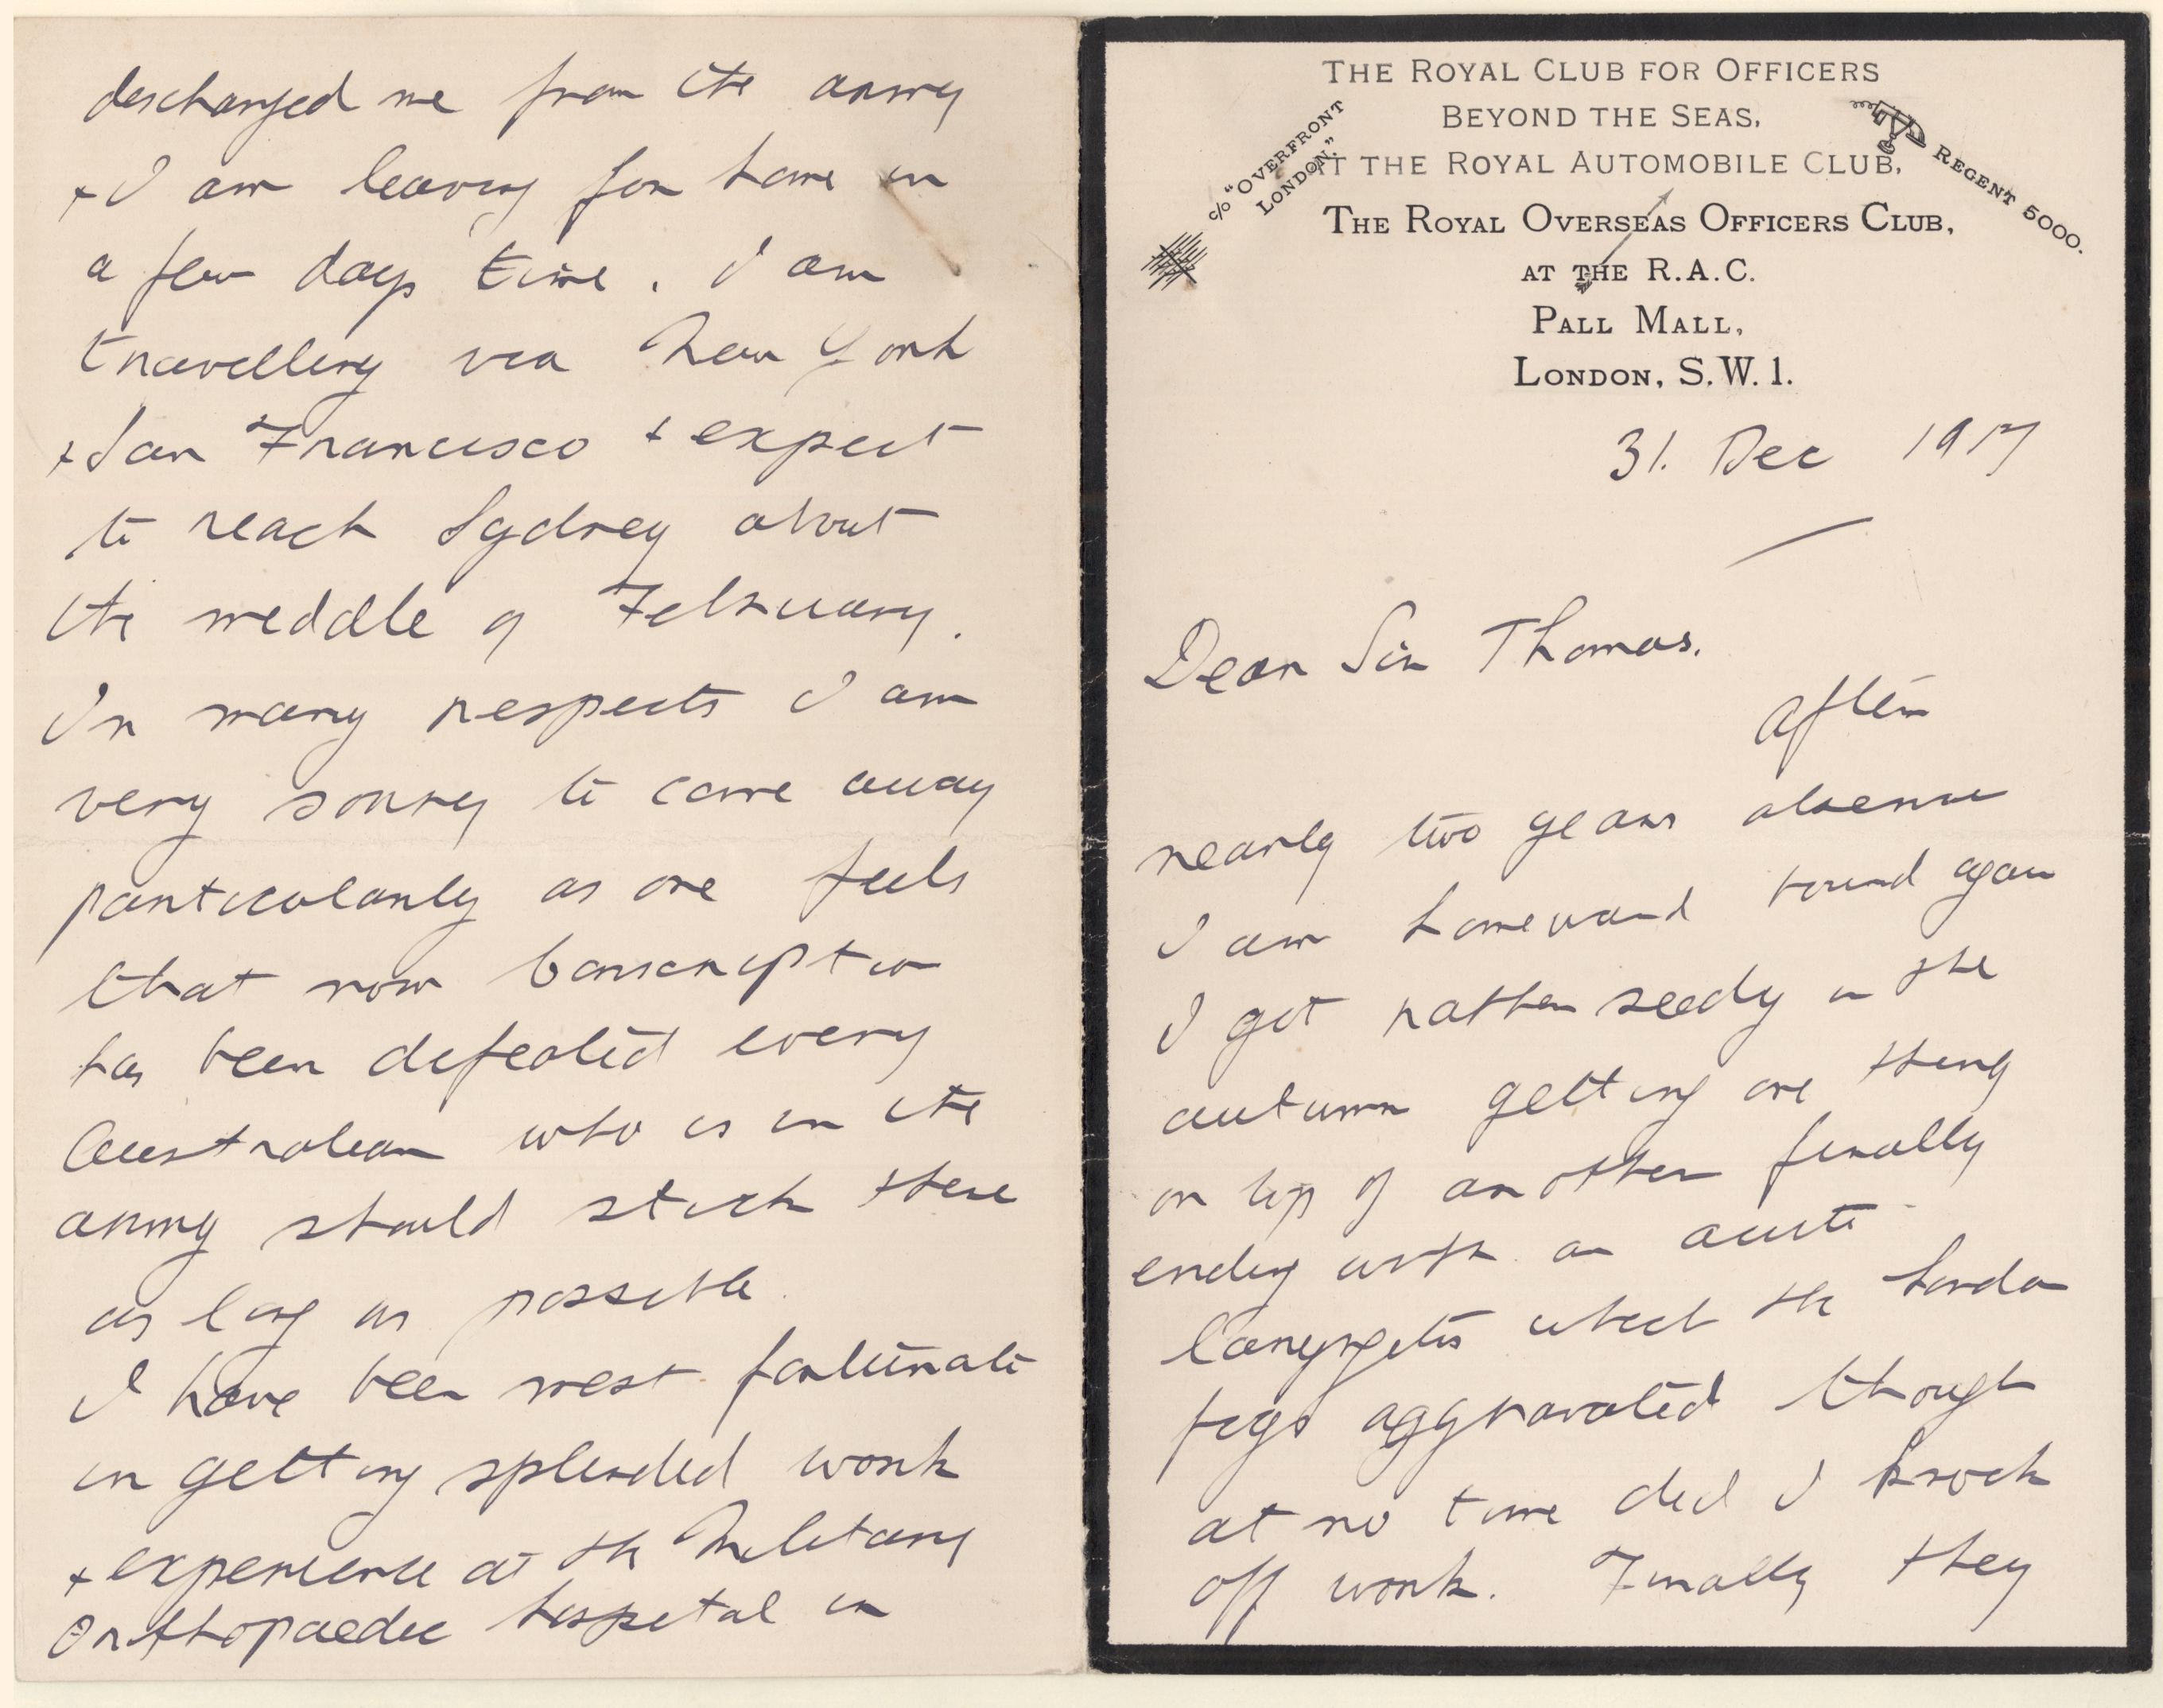 THE ROYAL CLUB FOR OFFICERS
BEYOND THE SEAS,
AT THE ROYAL AUTOMOBILE CLUB,
c/o "OVERFRONT
LONDON."
REGENT 5000.
THE ROYAL OVERSEAS OFFICERS CLUB,
AT THE R.A.C.
PALL MALL,
LONDON, S.W. 1.
31. Dec 1917
Dear Sir Thomas.
After
nearly two years absence
I am homeward bound again
I got rather seedy in the
autumn getting one thing
on top of another finally
ending with an acute
laryngitis which the London
fogs aggravated though
at no time did I knock
off work. Finally they
discharged me from the army
+ I am leaving for home in
a few days time. I am
travelling via New York
+ San Francisco + expect
to reach Sydney about
the middle of February.
In many respects I am
very sorry to come away
particularly as one feels
that now Conscription
has been defeated every
Australian who is in the
army should stick there
as long as possible.
I have been most fortunate
in getting splendid work
+ experience at the Military
Orthopaedic hospital in